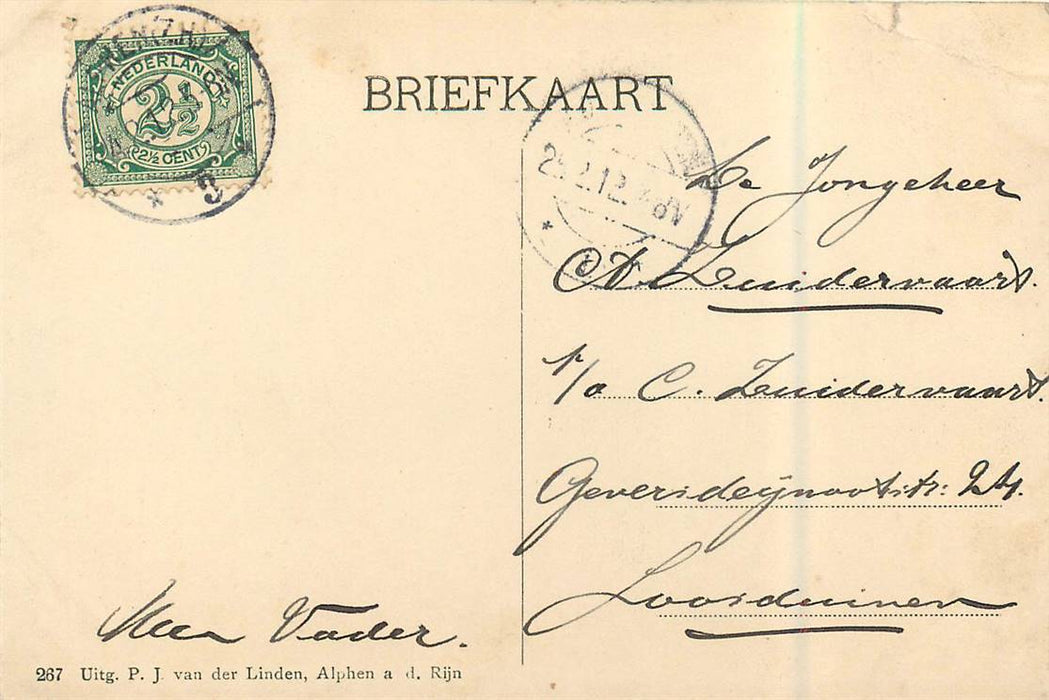 NEDERLAND
2½
2½ CENT
5
BRIEFKAART
De Jongeheer
A. Zuidervaart.
p/a C. Zuidervaart.
Geversdeynootstr: 24.
Loosduinen
Uw Vader.
267 Uitg. P. J. van der Linden, Alphen a d. Rijn